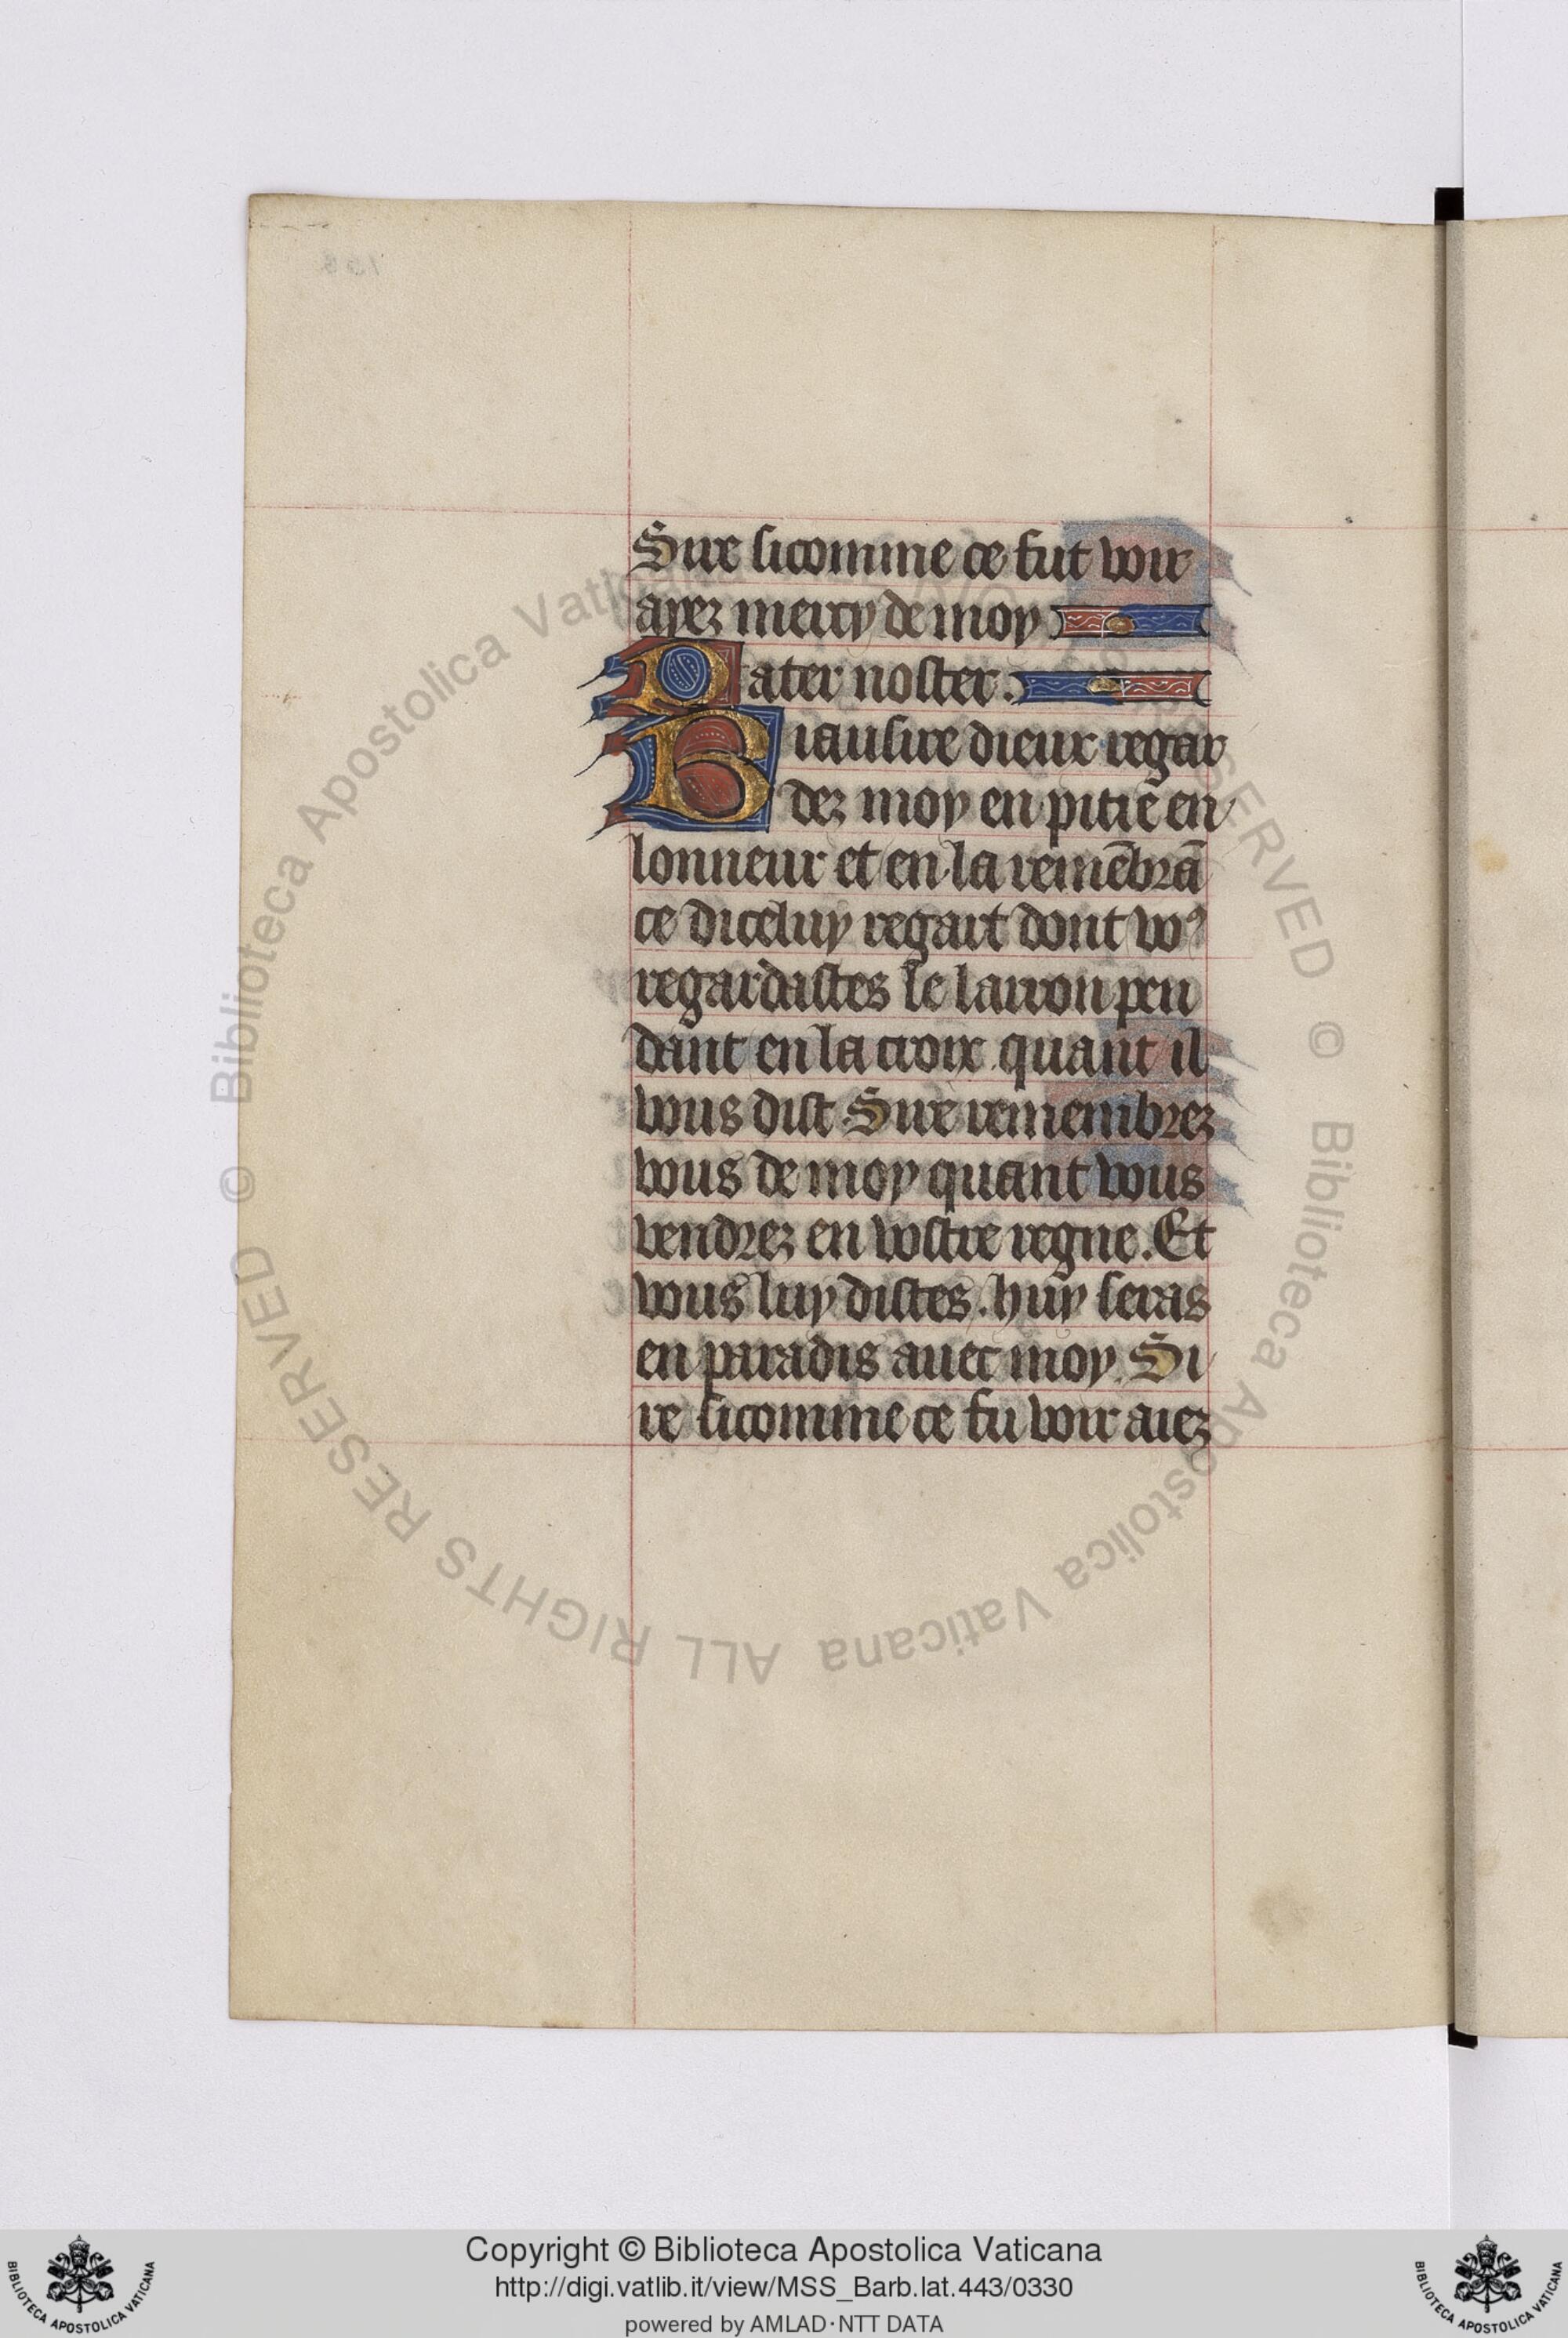 Sire sicomme ce fut voir
ayez mercy de moy
Pater noster.
Biau sire dieux regar
dez moy en pitie en
lonneur et en la remēbrā
ce diceluy regart dont voꝰ
regardastes le larron pen
dant en la croix quant il
vous dist Sire remembrez
vous de moy quant vous
vendrez en vostre regne. Et
vous luy distes. huy seras
en paradis avec moy. Si
re sicomme ce fu voir aiez
© Biblioteca Apostolica Vaticana
ALL RIGHTS RESERVED
© Biblioteca Apostolica Vaticana
Copyright © Biblioteca Apostolica Vaticana
http://digi.vatlib.it/view/MSS_Barb.lat.443/0330
powered by AMLAD·NTT DATA
BIBLIOTECA APOSTOLICA VATICANA
BIBLIOTECA APOSTOLICA VATICANA